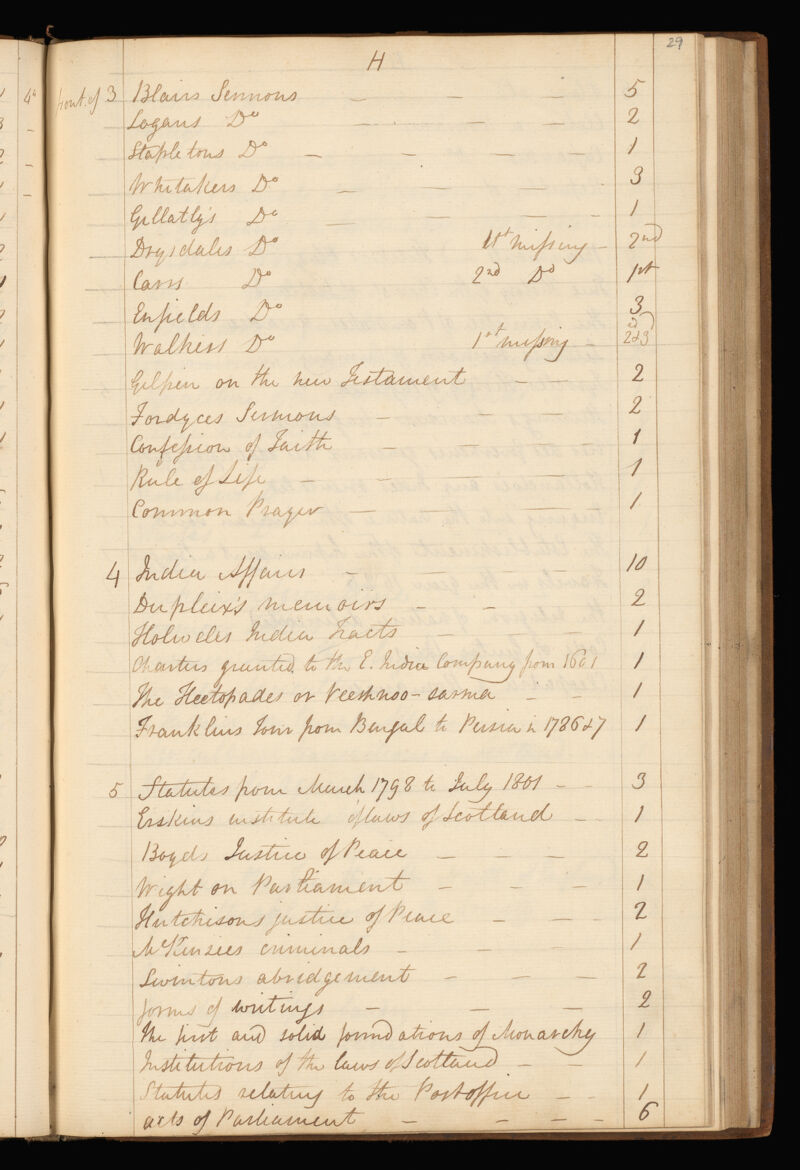 29
H
front of 3 Blairs Sermons — — — 5
Logans Do — — — — 2
Stapletons Do — — — — 1
Whitakers Do — — — 3
Gillatly's Do — — — 1
Drysdales Do 1st missing — 2nd
Carrs Do 2nd Do 1st
Enfields Do 3
Walkers Do 1st missing — 2d & 3
Gilpin on the new Testament — — 2
Fordyces Sermons — — — 2
Confession of Faith — — — 1
Rule of Life — — — 1
Common Prayer — — — — 1
4 India Affairs — — — — 10
Dupleix's memoirs — — 2
Holwells India Tracts — — — 1
Charters granted to the E. India Company from 1601 1
The Heetopades or Veeshnoo-sarma — — 1
Franklins Tour from Bengal to Persia in 1786 & 7 1
5 Statutes from March 1798 to July 1801 — — 3
Erskins institute of laws of Scotland — — 1
Boyds Justice of Peace — — — 2
Wight on Parliament — — — 1
Hutchisons justice of Peace — — — 2
McKinzees criminals — — — 1
Swintons abridgement — — — 2
forms of writings — — — 2
The first and solid foundations of Monarchy 1
Institutions of the laws of Scotland — — 1
Statutes relating to the Post office — — 1
acts of Parliament — — — — 6